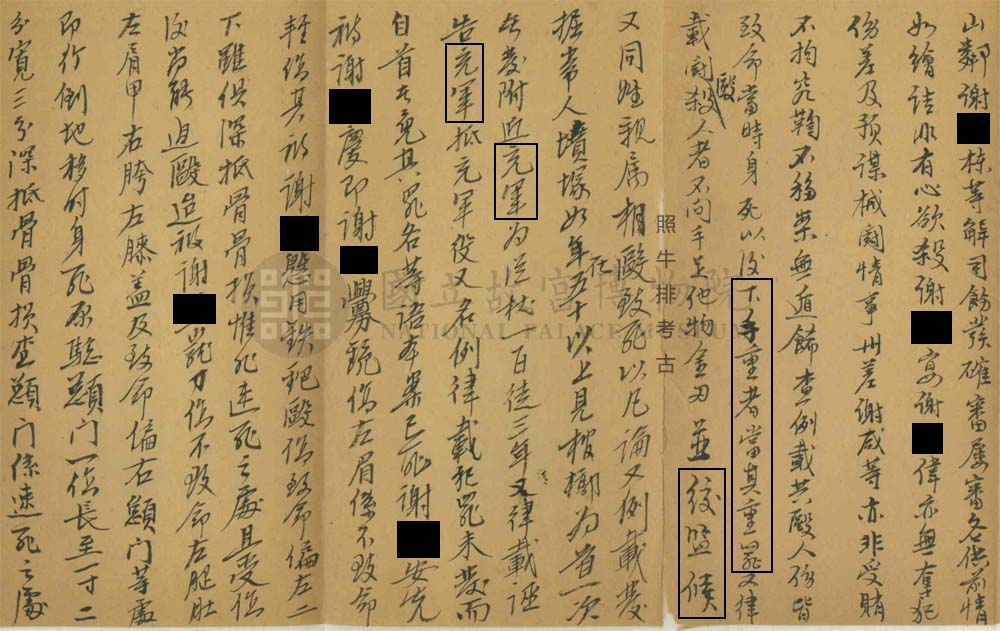 山鄰謝 棟等解司飭發確審屢審各供前情
如繪詰非有心欲殺謝 宴謝 偉亦無奪犯
傷差及預謀械鬪情事州差謝咸等亦非受賄
不拘究鞫不移案無遁飾查例載共毆人傷皆
致命當時身死以後下手重者當其重罪又律
載鬪毆殺人者不問手足他物金刃並絞監候
又同姓親属相毆致死以凡論又例載發
掘常人墳塚如年在五十以上見棺槨為首一次
者發附近充軍為從杖一百徒三年又律載誣
告充軍抵充軍役又名例律載犯罪未發而
自首者免其罪各等語本案已死謝 安先
被謝 慶即謝 興 銃傷左眉係不致命
輕傷其被謝 懸用鉄鈀毆傷致命偏左二
下雖俱深抵骨骨損惟非速死之處且受傷
後尚能 迫毆迨被謝 刀傷不致命左肚
左肩甲右胯左膝盖及致命偏右顖門等處
即行倒地移時身死原驗顖門一傷長至一寸二
分寬三分深抵骨骨損查顖門係速死之處
照牛排考古
國立故宮博物院
NATIONAL PALACE MUSEUM